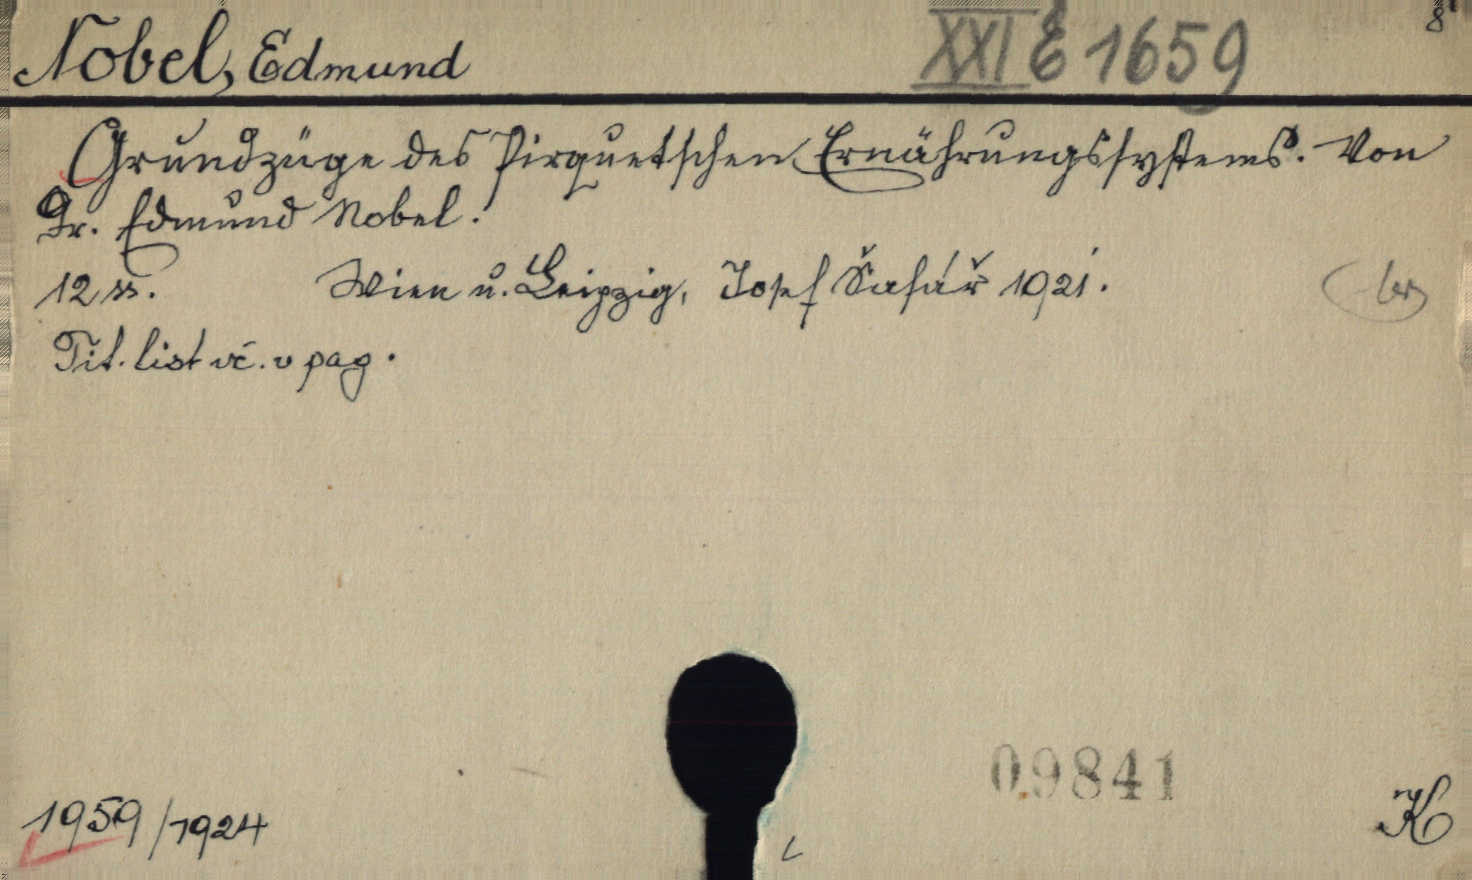 Nobel, Edmund XXI E 1659 8°
Grundzüge des Pirquetschen Ernährungssystems. Von
Dr. Edmund Nobel.
12 ss. Wien u. Leipzig, Josef Šafář 1921.
Tit. list vč. v pag.
09841
1959/1924
K